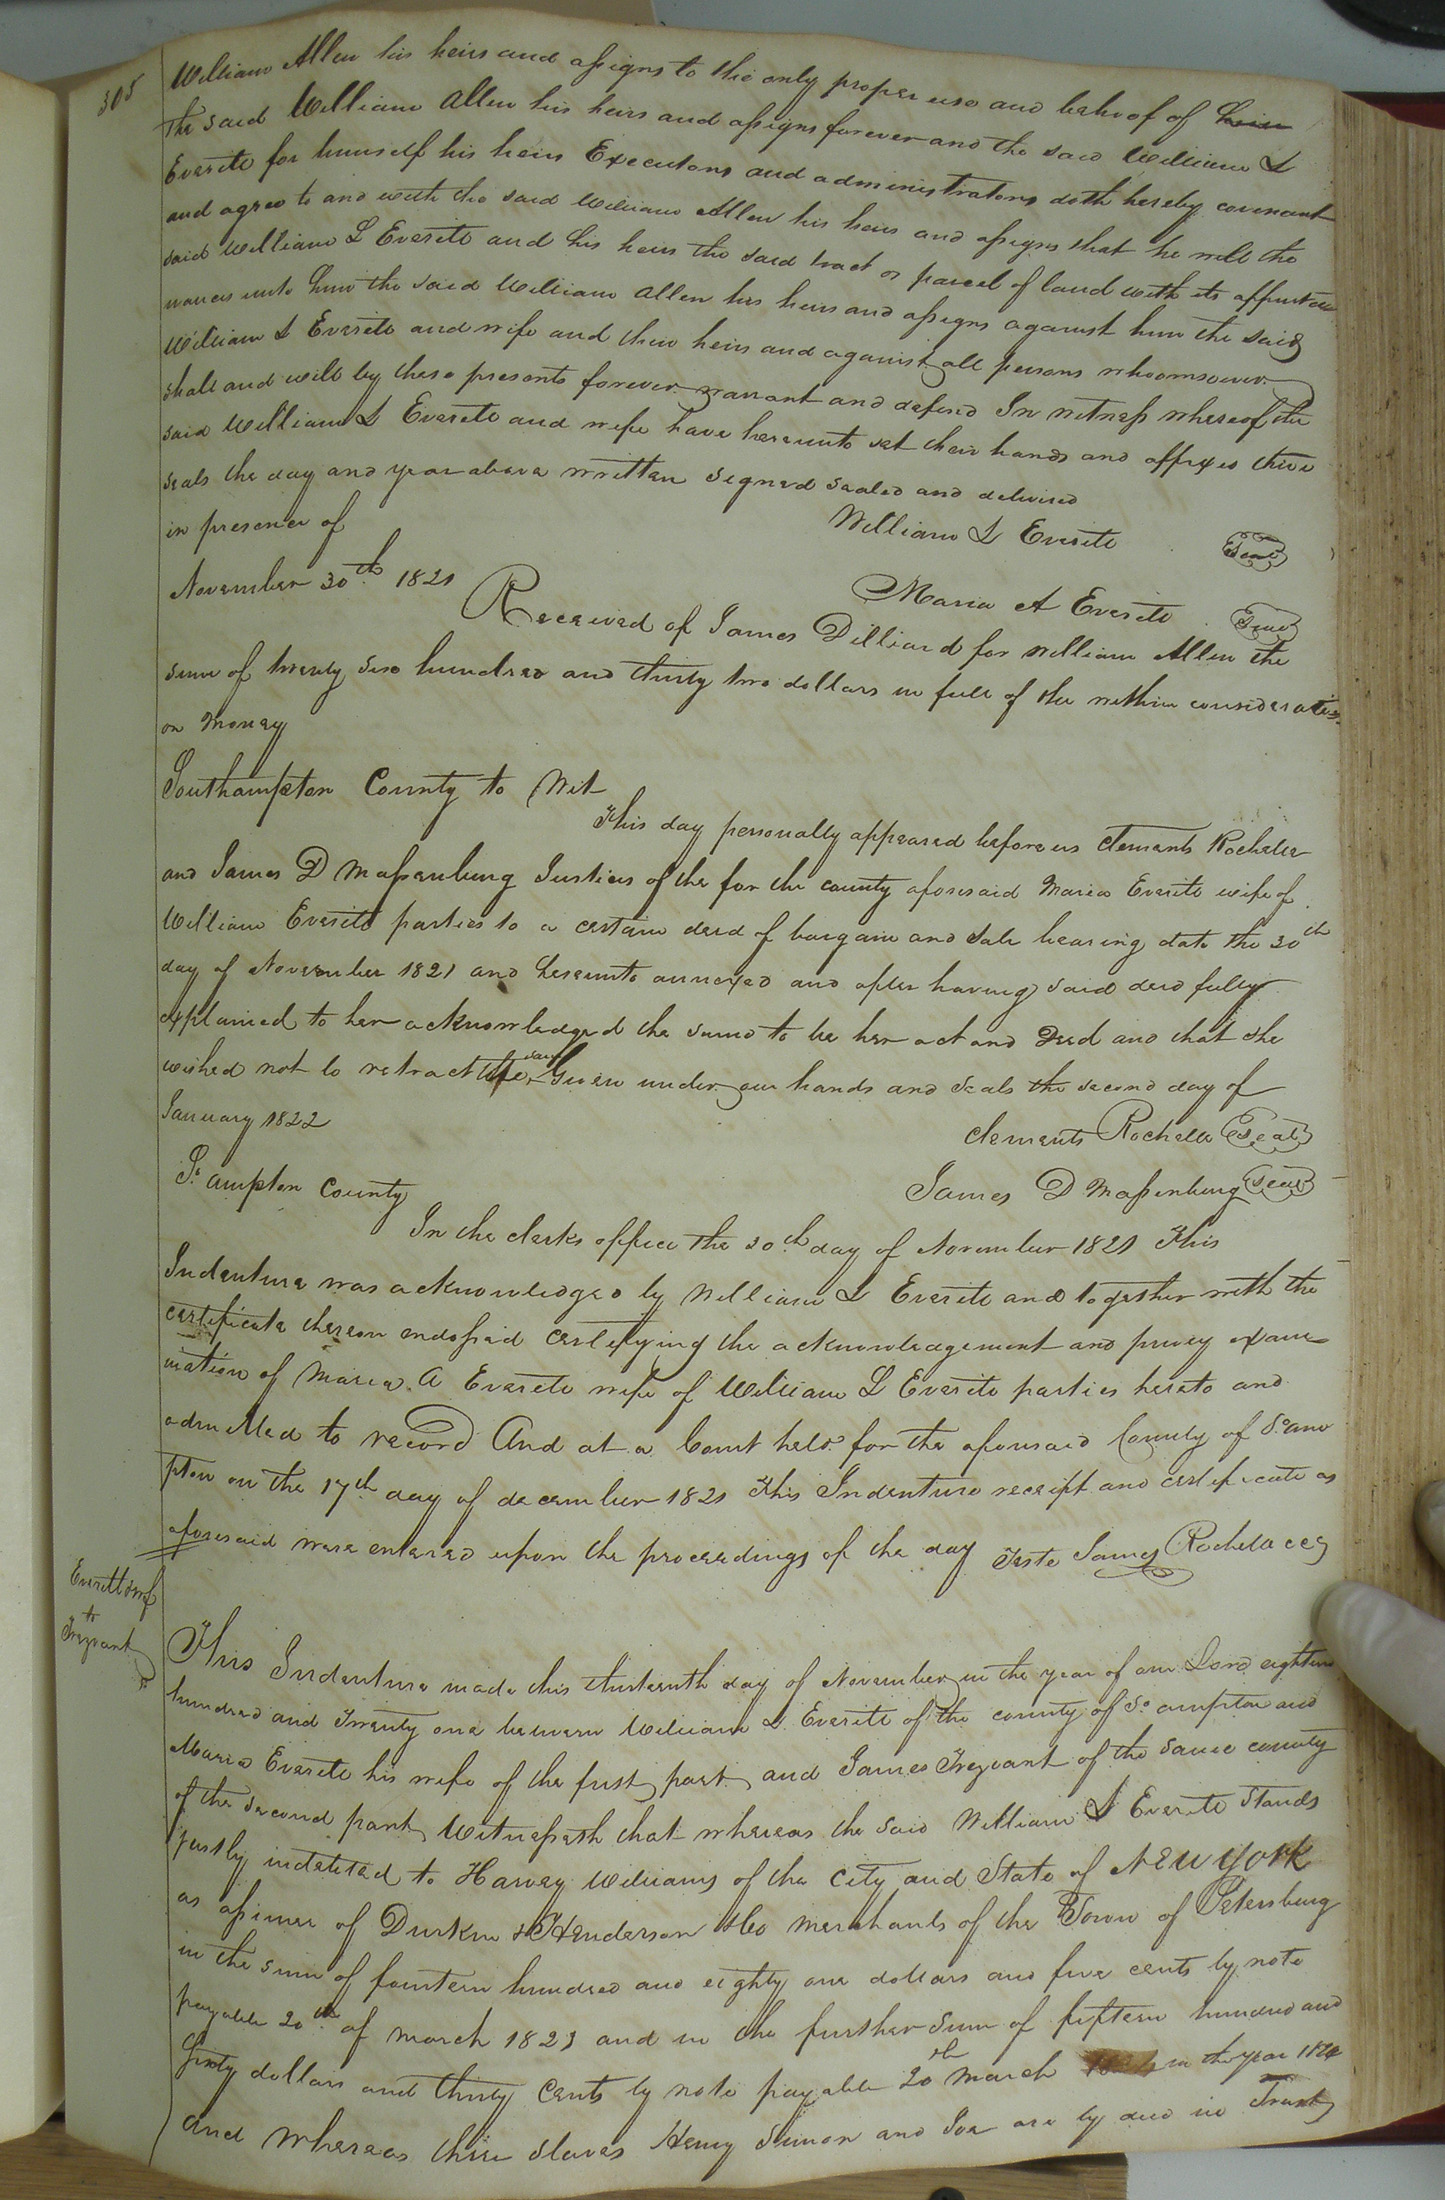 305
William Allen his heirs and assigns to the only proper use and behoof of him
the said William Allen his heirs and assigns forever and the said William L
Everitt for himself his heirs Executors and administrators doth hereby covenant
and agree to and with the said William Allen his heirs and assigns that he will the
said William L Everitt and his heirs the said tract or parcel of land with its appurte
nances unto him the said William Allen his heirs and assigns against him the said
William L Everitt and wife and their heirs and against all persons whoomsoever
shall and will by these presents forever warrant and defend In witness whereof the
said William L Everitt and wife have hereunto set their hands and affixed their
seals the day and year above written signed sealed and delivered
in presence of
William L Everitt Seal
November 30th 1821
Maria A Everitt Seal
Received of James Dilliard for William Allen the
sum of twenty two hundred and thirty two dollars in full of the within considerati
on money
Southampton County to Wit
This day personally appeared before us Clements Rochelle
and James D Massenburg Justices of the for the county aforesaid Maria Everitt wife of
William Everitt parties to a certain deed of bargain and sale bearing date the 30th
day of November 1821 and hereunto annexed and after having said deed fully
explained to her acknowledged the same to be her act and Deed and that she
wished not to retract the same Given under our hands and seals the second day of
January 1822
Clements Rochelle Seal
So ampton County
James D Massenburg Seal
In the clerks office the 30th day of November 1821 This
Indenture was acknowledged by William L Everitt and together with the
certificate thereon endorsed certifying the acknowledgement and privy exami
nation of Maria A Everitt wife of William L Everitt parties hereto and
admitted to record And at a Court held for the aforesaid County of So am
pton on the 17th day of december 1821 This Indenture receipt and certificate as
aforesaid were entered upon the proceedings of the day Teste James Rochelle cc
Everitt & wf
to
Trezvant
This Indenture made this thirteenth day of November in the year of our Lord eighteen
hundred and Twenty one between William L Everitt of the county of So ampton and
Maria Everitt his wife of the first part and James Trezvant of the same county
of the second part Witnesseth that whereas the said William L Everitt stands
justly indebted to Harvey Williams of the City and State of New York
as assinee of Durkin & Henderson & Co merchants of the Town of Petersburg
in the sum of fourteen hundred and eighty one dollars and five cents by note
payable 20th of march 1823 and in the further sum of fifteen hundred and
sixty dollars and thirty Cents by note payable 20th March in the year 1824
and whereas three slaves Henry Simon and Joe are by deed in Trust